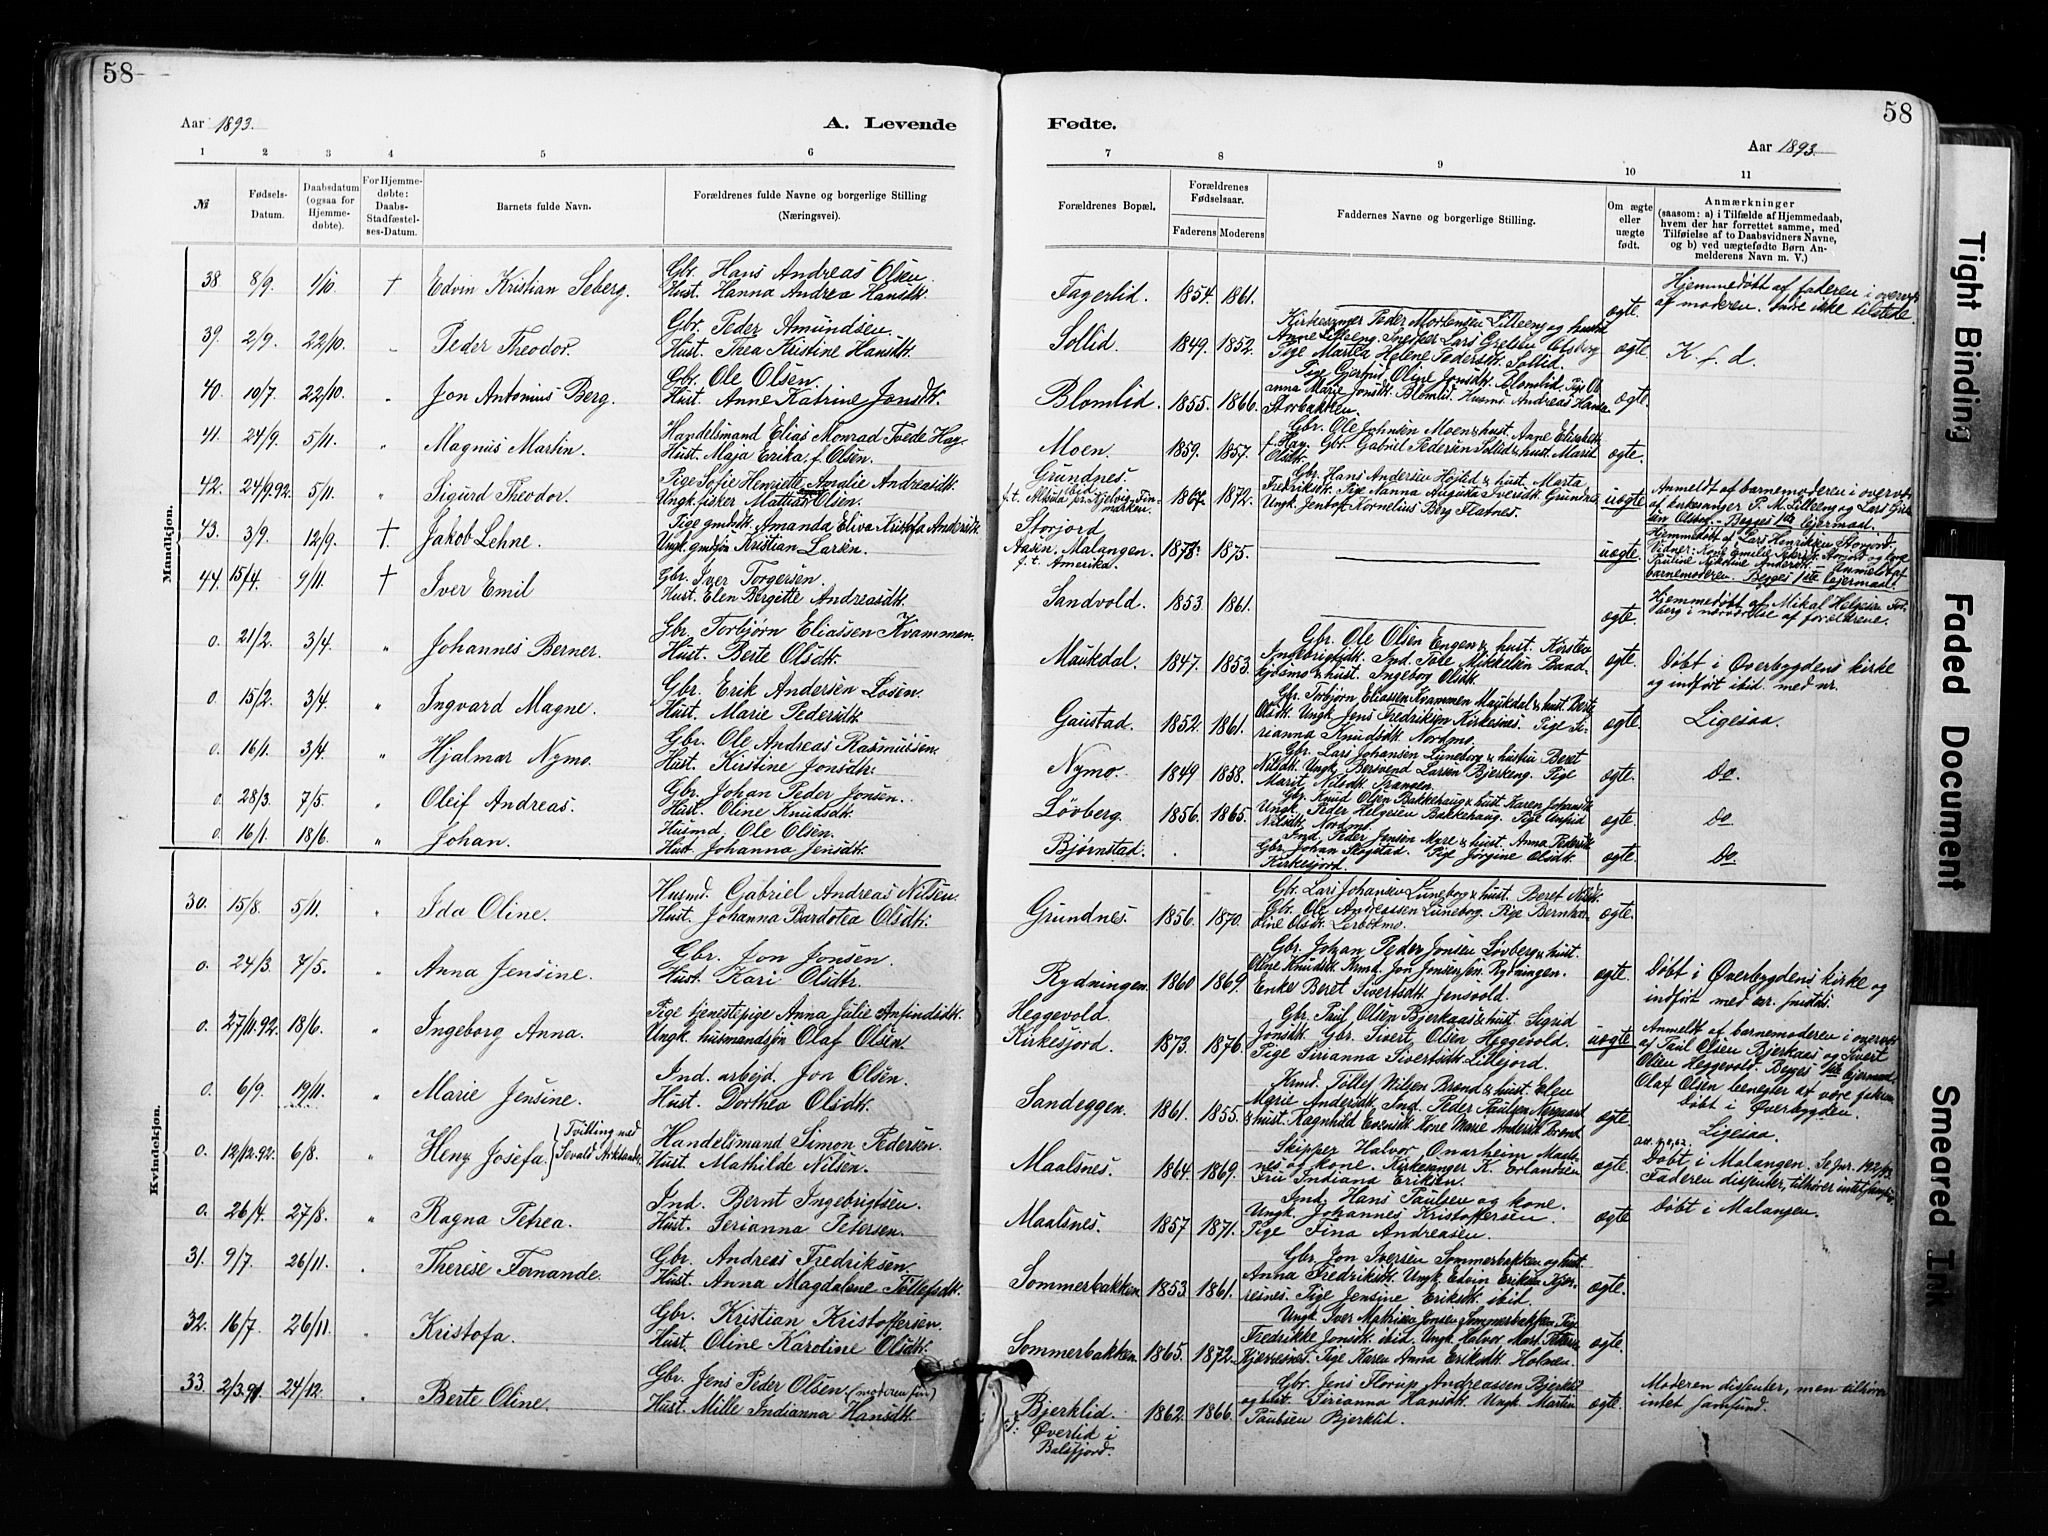 58
Aar 1893.
A. Levende
1 2 3 4 5 6
№
Fødsels-Datum.
Daabsdatum (ogsaa for Hjemme-døbte).
For Hjemme-døbte: Daabs-Stadfæstel-ses-Datum.
Barnets fulde Navn.
Forældrenes fulde Navne og borgerlige Stilling (Næringsvei).
Mandkjøn.
38. 8/9. 1/10. † Edvin Kristian Seberg. Gbr. Hans Andreas Olsen.
Hust. Hanna Andrea Hansdtr.
39. 2/9. 22/10. Peder Theodor. Gbr. Peder Amundsen.
Hust. Thea Kristine Hansdtr.
40. 10/7. 22/10. Jon Antonius Berg. Gbr. Ole Olsen.
Hust. Anne Katrine Jonsdtr.
41. 24/9. 5/11. Magnus Martin. Handelsmand Elias Monrad Tvede Hay.
Hust. Maja Erika f. Olsen.
42. 24/9.92. 5/11. Sigurd Theodor. Pige Sofie Henriette Amalie Andreasdtr.
Ungk. fisker Mathias Olsen.
43. 3/9. 12/9. † Jakob Lehne. Pige gmdtr. Amanda Eliva Kristofa Andersdtr.
Ungk. gmdsøn Kristian Larsen.
44. 15/4. 9/11. † Iver Emil Gbr. Iver Torgersen.
Hust. Elen Bergitte Andreasdtr.
0. 21/2. 3/4. " Johannes Berner. Gbr. Torbjørn Eliassen Kvammen.
Hust. Berte Olsdtr.
0. 15/2. 3/4. " Ingvard Magne. Gbr. Erik Andersen Løsen.
Hust. Marie Pedersdtr.
0. 16/1. 3/4. " Hjalmar Nymo. Gbr. Ole Andreas Rasmussen.
Hust. Kirstine Jonsdtr.
0. 28/3. 7/5. " Oleif Andreas. Gbr. Johan Peder Jonsen.
Hust. Oline Knudsdtr.
0. 16/1. 18/6. " Johan. Husmd. Ole Olsen.
Hust. Johanna Jensdtr.
Kvindekjøn.
30. 15/8. 5/11. " Ida Oline. Husmd. Gabriel Andreas Nilsen
Hust. Johanna Bardotea Olsdtr.
0. 24/3. 7/5. " Anna Jensine. Gbr. Jon Jonsen.
Hust. Kari Olsdtr.
0. 27/11.92. 18/6. " Ingeborg Anna. Pige tjenestepige Anna Julie Anfindsdtr.
Ungk. husmandsøn Olaf Olsen.
0. 6/9. 19/11. " Marie Jensine. Ind. arbejd. Jon Olsen.
Hust. Dorthea Olsdtr.
0. 12/12.92. 6/8. " Heny Josefa. Tvilling med Sevald Arksander Handelsmand Simon Pedersen.
Hust. Mathilde Nilsen.
0. 26/4. 27/8. " Ragna Petrea. Ind. Bernt Ingebrigtsen.
Hust. Serianna Petersen.
31. 9/7. 26/11. Therese Fernande. Gbr. Andreas Fredriksen.
Hust. Anna Magdalene Tollefsdtr.
32. 16/7. 26/11. " Kristofa. Gbr. Kristian Kristoffersen.
Hust. Oline Karoline Olsdtr.
33. 2/3.91. 24/12. " Berte Oline. Gbr. Jens Peder Olsen.
Hust. Mille Indianna Hansdtr.
58
Fødte.
Aar 1893.
7 8 9 10 11
Forældrenes Bopæl.
Forældrenes Fødselsaar.
Faderens Moderens
Faddernes Navne og borgerlige Stilling.
Om ægte eller uægte født.
Anmærkninger
(saasom: a) i Tilfælde af Hjemmedaab, hvem der har forrettet samme, med Tilføielse af to Daabsvidners Navne, og b) ved uægtefødte Børn Anmelderens Navn m. V.)
Fagerlid. 1854. 1861. ægte. Hjemmedøbt af faderen i overv.
af moderen. Intre ikke tilstede.
Sollid. 1849. 1852. Kirkesanger Peder Mortensen Lilleeng og hustru
Anne Lilleeng. Snedker Lars Grebstu Olsborg
Pige Martea Helene Pedersdtr. Sollid. ægte. K. f. d.
Blomlid. 1855. 1866. Pige Gjertrud Oline Jonsdtr. Blomlid. Pige Ol-
anna Marie Jonsdtr. Blomlid. Husmd. Andreas Hansen
Storbakken. ægte.
Moen. 1859. 1857. Gbr. Ole Johnsen Moen & hust. Anne Elisabeth
f. Hay. Gbr. Gabriel Pedersen Sollid & hust. Marit
Olsdtr. ægte.
Grundnes. ibid
f. t. Alsvik pr. Kjelvig, Fin-
marken. 1867. 1872. Gbr. Hans Andersen Højsted & hust. Marta
Fredriksdtr. Pige Nanna Augusta Iversdtr. Grundnes
Ungk. Jentoft Kornelius Berg Flatnes. uægte. Anmeldt af barnemoderen i overv.
af kirkesanger P. M. Lilleeng og Lars Greb-
stu Olsborg. – Begges 1ste lejermaal.
Storjord
Aasen, Malangen.
f. t. Amerika. 1873. 1875. uægte. Hjemmedøbt af Lars Henriksen Storjord.
Pauline Nikoline Andersdtr. Anmeldt af
barnemoderen. Begges 1ste lejermaal.
Sandvold. 1853. 1861. ægte. Hjemmedøbt af Mikal Helgesen For-
berg i nærværelse af forældrene.
Maukdal. 1847. 1853. Gbr. Ole Olsen Engen & hust. Kirsten
Ingebrigtsdtr. Ind. Tole Mikkelsen Baad-
kjøsmo & hust. Ingeborg Olsdtr. ægte. Døbt i Øverbygdens kirke
og indført ibid. med nr.
Gaustad. 1852. 1861. Gbr. Torbjørn Eliassen Kvammen Maukdal & hust. Berte
Olsdtr. Ungk. Jens Fredriksen Kirkesnes. Pige Si-
rianna Knudsdtr. Nordmo. ægte. Ligesaa.
Nymo. 1849 1858. Gbr. Lars Johansen Luneborg & hustru Beret
Nilsdtr. Ungk. Bersvend Larsen Bjerkeng. Pige
Marit Nilsdtr. Aransen. ægte. Do.
Løvberg. 1856. 1865. Gbr. Knud Olsen Bakkehaug & hust. Karen Johansdtr.
Ungk. Peder Helgesen Bakkehaug. Pige Unfrid
Nilsdtr. Nordmo. ægte. Do
Bjørnstad. Ind. Peder Jensen Myre & hust. Anna Pedersdtr.
Gbr. Johan Slogstad. Pige Jørgine Olsdtr.
Kirkesjord. ægte. Do.
Grundnes. 1856. 1870. Gbr. Lars Johansen Luneborg & hust. Beret Nilsdtr.
Gbr. Ole Andreassen Luneborg. Pige Bernhar-
dine Olsdtr. Lerbotmo. ægte.
Rydningen. 1860 1869. Gbr. Johan Peder Jonsen Løvberg & hust.
Oline Knudsdtr. Krmd. Jon Jonsen sen. Rydningen.
Enke Beret Sivertsdtr. Jensvold. ægte. Døbt i Øverbygdens kirke og
indført med nr. smstds.
Heggevold.
Kirkesjord. 1873. 1876. Gbr. Paul Olsen Bjerkaas & hust. Sigrid
Jonsdtr. Gbr. Sivert Olsen Heggevold.
Pige Sirianna Sivertsdtr. Lillejord. uægte. Anmeldt af barnemoderen i overv.
af Paul Olsen Bjerkaas og Sivert
Olsen Heggevold. Begges 1ste lejermaal.
Olaf Olsen benegter at være faderen.
Døbt i Øverbygden.
Sandeggen. 1861. 1855. Krmd. Tollef Nilsen Brond & hust. Elen
Marie Andersdtr. Ind. Peder Paulsen Nergaard
& hust. Ragnhild Evensdtr. Kone Marie Andersdtr. Brond ægte. Ligesaa.
Maalsnes. 1864. 1869. Skipper Halvor Onarheim Maals-
nes og kone. Kirkesanger K. Erlandsen
Fru Indiana Eriksen. ægte. Døbt i Malangen. Se Jnr. 192/93
Faderen dissenter, tilhører intet samfund.
Maalsnes. 1857 1871. Ind. Hans Paulsen og kone.
Ungk. Johannes Kristoffersen.
Pige Fina Andreasen. ægte Døbt i Malangen.
Sommerbakken 1853. 1861. Gbr. Jon Iversen Sommerbakken og hust.
Anna Fredriksdtr. Ungk. Edvin Eriksen Kjer-
resnes. Pige Jensine Eriksdtr. ibid. ægte.
Sommerbakken. 1865. 1872. Ungk. Iver Mathias Jensen Sommerbakken. Pige
Fredrikke Jonsdtr. ibid. Ungk. Halvor Mart. Petersen
Kjerresnes. Pige Karen Anna Eriksdtr. Holmen. ægte.
Bjerklid.
f: Øverlid i
Balsfjord. 1862. 1866. Gbr. Jens Florup Andreassen Bjerklid
og hust. Sirianna Hansdtr. Ungk. Martin
Paulsen Bjerklid. ægte. Moderen dissenter, men tilhører
intet samfund.
Tight Binding
Faded Document
Smeared Ink